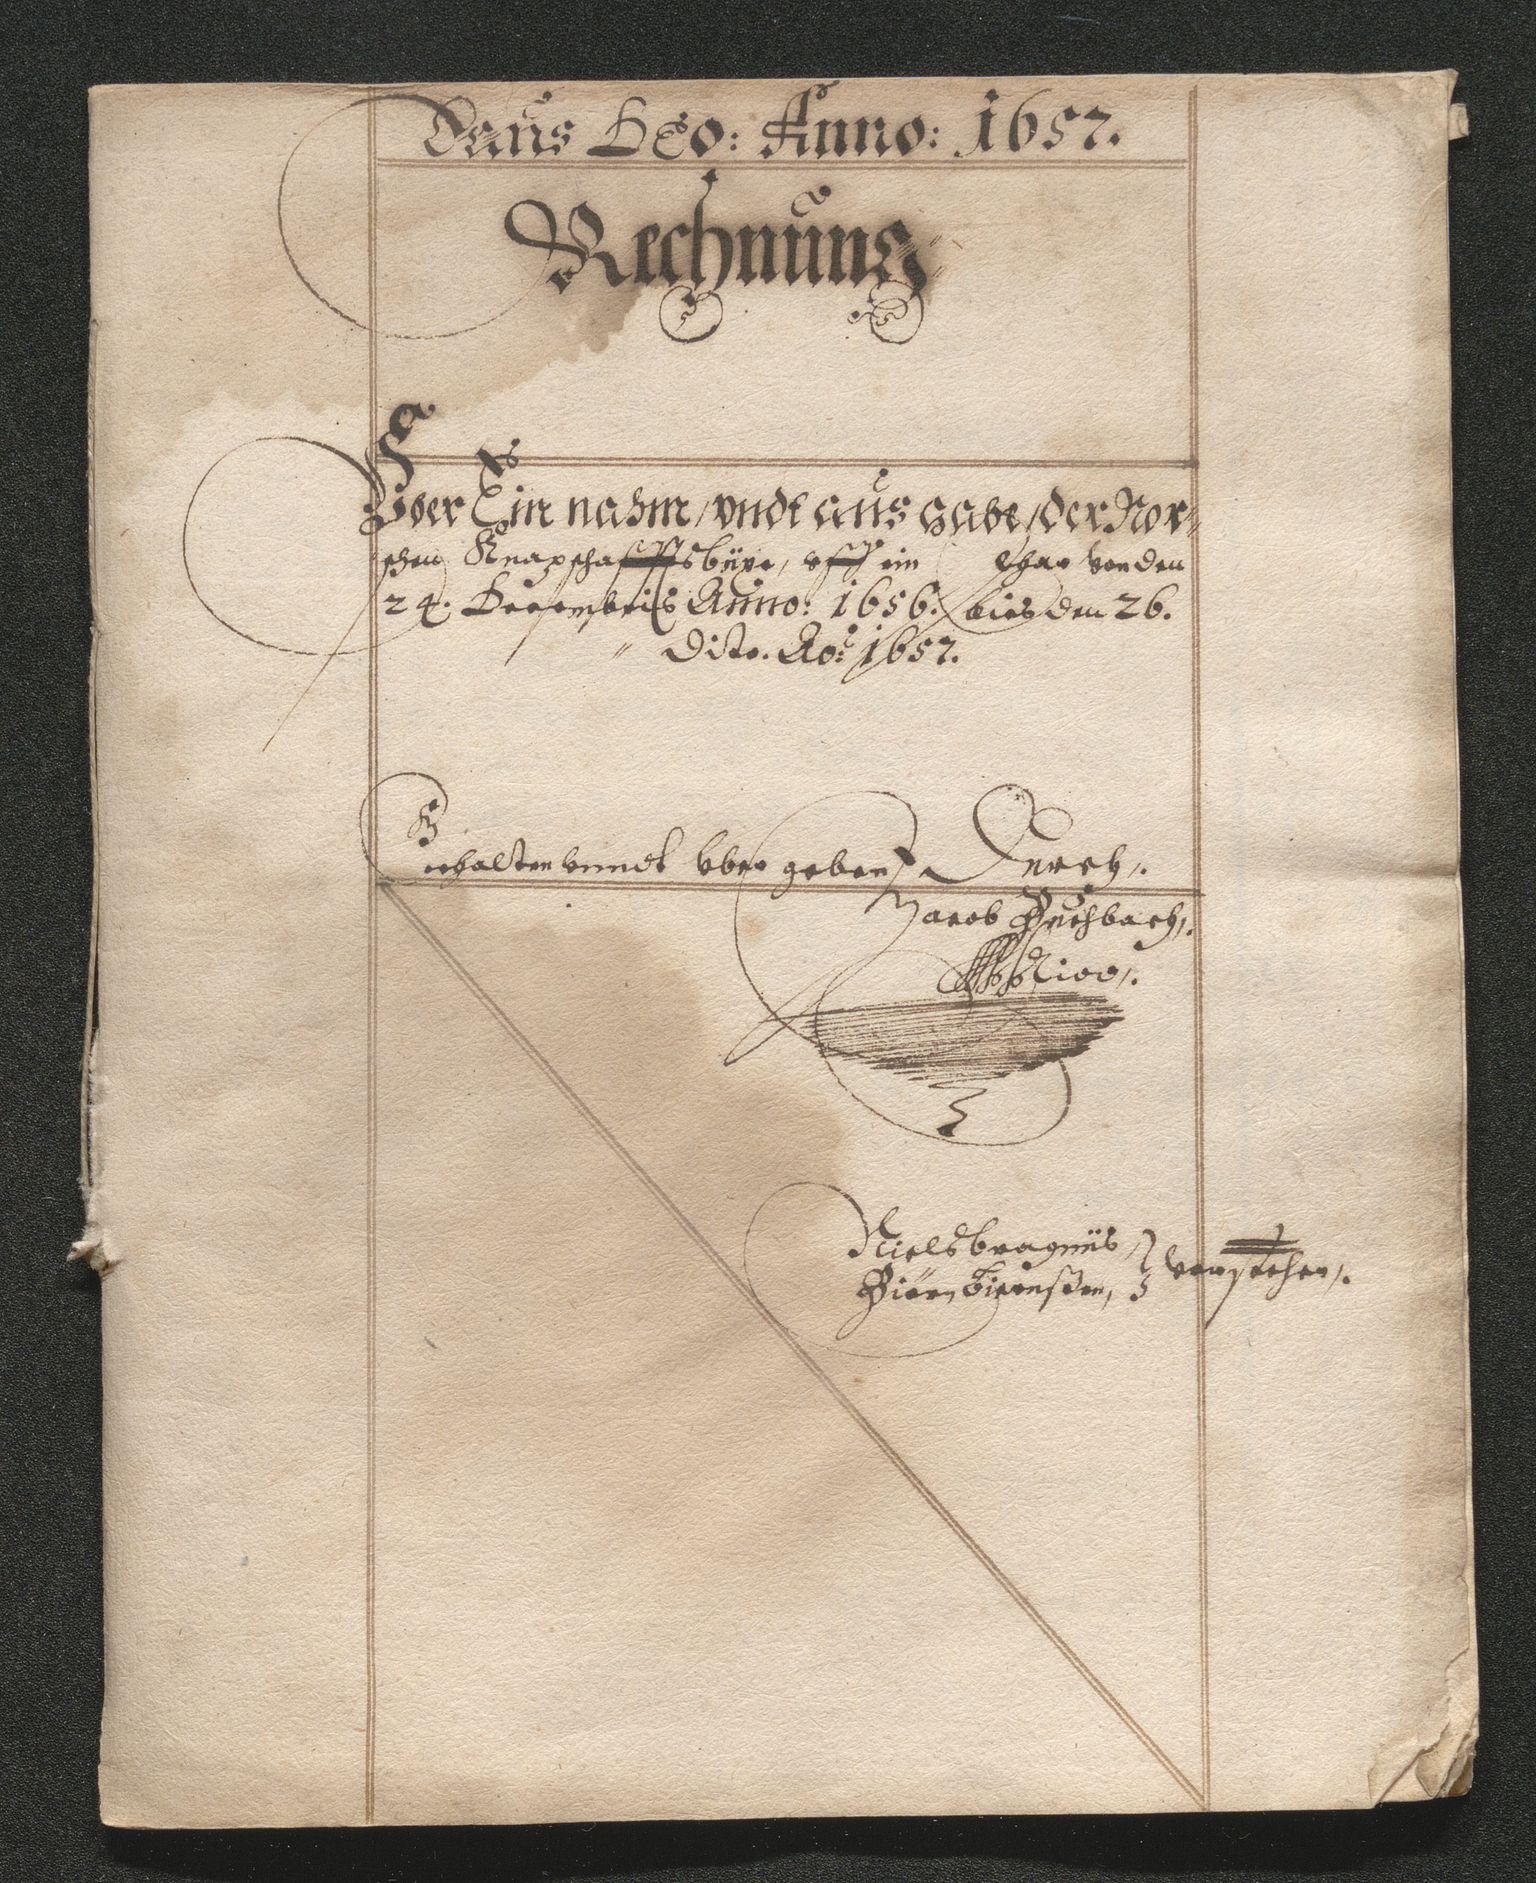 Laus Deo: Anno: 1657.
Rechnung
Vber Ein nahm / vndt aus gabe / der Nor-
schen Knapschafftsbüxe, vff ein Jhar von den
24. Decembris Anno: 1656. bies den 26.
Dito. Ao: 1657.
Gehalten vnndt vber geben, Durch,.
Jacob Buchbach,.
Niels bragniis
Biörn Eivensten, vorstehern,.